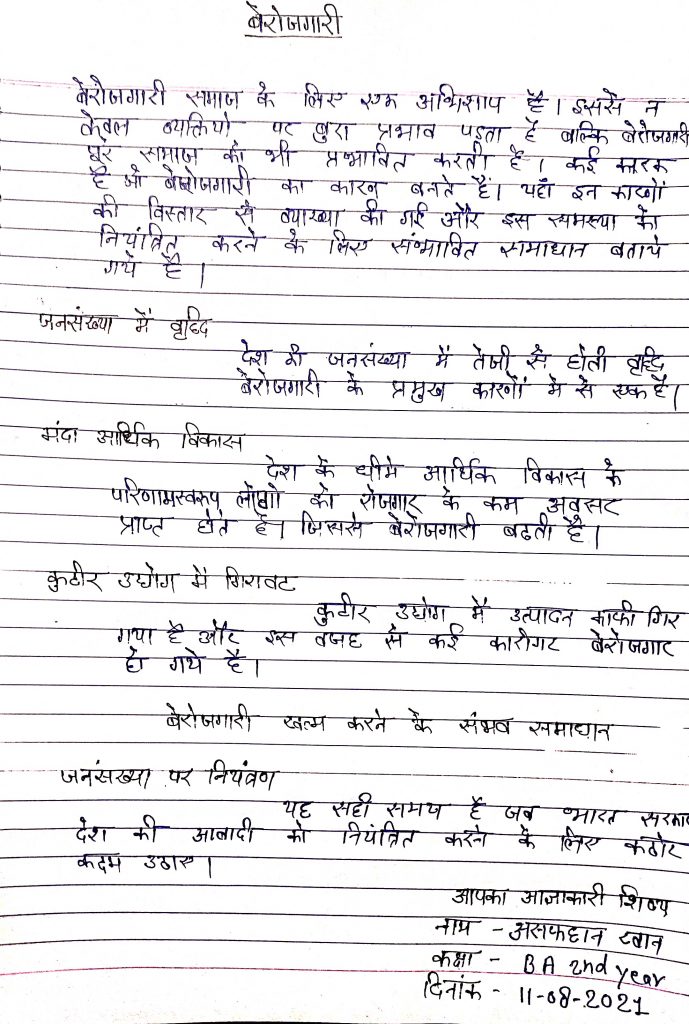 बेरोजगारी
बेरोजगारी समाज के लिए एक अभिशाप है। इससे न
केवल व्यक्तियो पर बुरा प्रभाव पड़ता है बल्कि बेरोजगारी
पूरे समाज को भी प्रभावित करती है। कई कारक
है जो बेरोजगारी का कारन बनते हैं। यहाँ इन कारणों
की विस्तार से व्याख्या की गई और इस समस्या को
नियंत्रित करने के लिए संभावित समाधान बताये
गये है।
जनसंख्या में वृद्धि
देश की जनसंख्या में तेजी से होती वृद्धि
बेरोजगारी के प्रमुख कारणों मे से एक है।
मंदा आर्थिक विकास
देश के धीमे आर्थिक विकास के
परिणामस्वरूप लोगो को रोजगार के कम अवसर
प्राप्त होते है। जिससे बेरोजगारी बढती है।
कुटीर उद्योग में गिरावट
कुटीर उद्योग में उत्पादन काफी गिर
गया है और इस वजह से कई कारीगर बेरोजगार
हो गये है।
बेरोजगारी खत्म करने के संभव समाधान
जनसंख्या पर नियंत्रण
यह सही समय है जब भारत सरकार
देश की आबादी को नियंत्रित करने के लिए कठोर
कदम उठाए।
आपका आज्ञाकारी शिष्य
नाम - असफहान खान
कक्षा - BA 2nd year
दिनांक - 11-08-2021